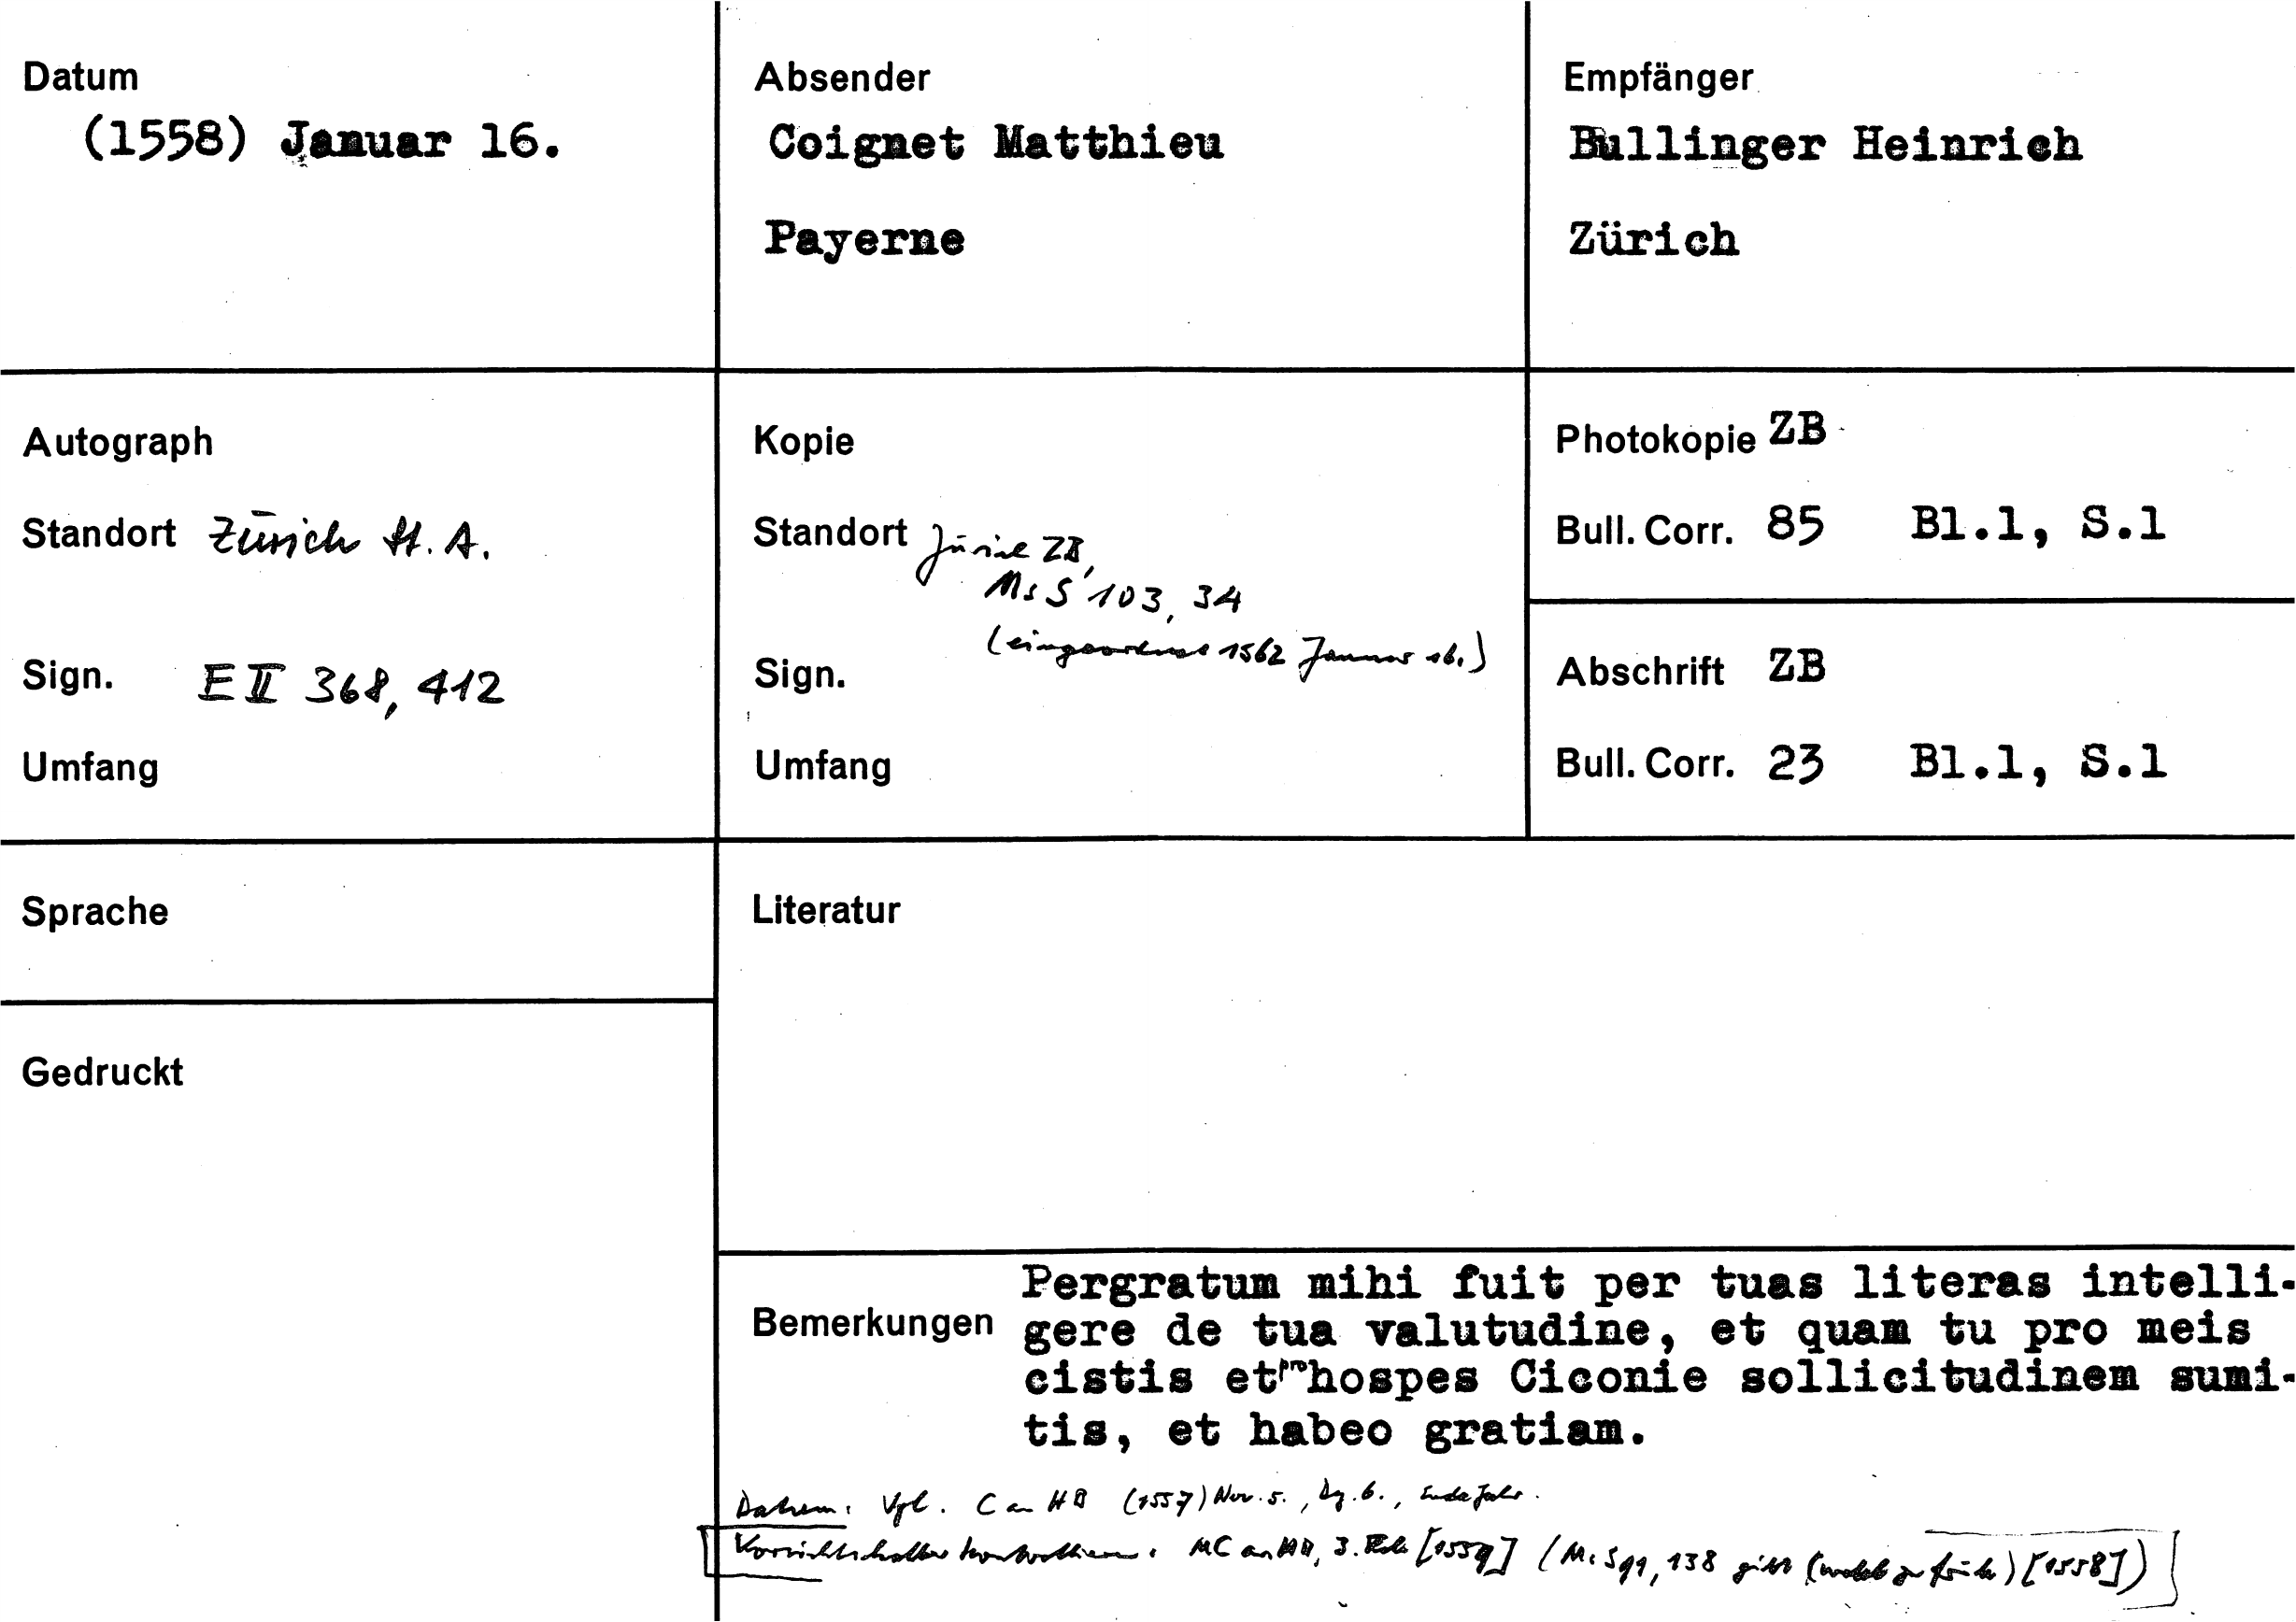 Datum
(1558) Januar 16.
Absender
Coignet Matthieu
Payerne
Empfänger
Bullinger Heinrich
Zürich
Autograph
Standort Zürich St. A.
Sign. E II 368, 412
Umfang
Kopie
Standort Zürich ZB,
Ms S 103, 34
(eingeordnet 1562 Januar 16.)
Sign.
Umfang
Photokopie ZB
Bull. Corr. 85 Bl.1, S.1
Abschrift ZB
Bull. Corr. 23 Bl.1, S.1
Sprache
Literatur
Gedruckt
Bemerkungen
Pergratum mihi fuit per tuas literas intelli-
gere de tua valutudine, et quam tu pro meis
cistis et pro hospes Ciconie sollicitudinem sumi-
tis, et habeo gratiam.
Datum: Vgl. C an HB (1557) Nov. 5., Dz. 6., Ende Jahr.
Vorsichtshalber kontrollieren: MC an HB, 3. Feb. [1559] (Ms S 91, 138 gibt (wohl zu früh) [1558])